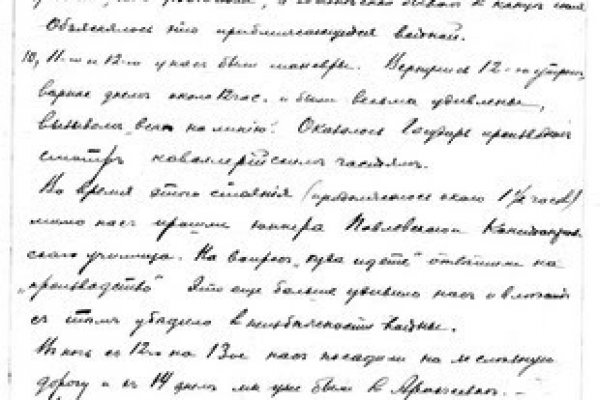 Объяснялось это приближающейся войной.
10, 11-го и 12-го у нас были маневры. Вернулись 12-го утром,
вернее днем около 12 час. и были весьма удивлены,
вызовом „всех на линию". Оказалось Государь производит
смотр кавалерийским частям.
Во время этого стояния (продолжалось около 1½ часов)
мимо нас прошли юнкера Павловского
ского училища. На вопрос „куда идете" ответили на
„производство" Это еще больше удивило нас и
с тем убедило в неизбежности войны.
В ночь с 12го на 13ое нас посадили на железную
дорогу и к 14 днем мы уже были в